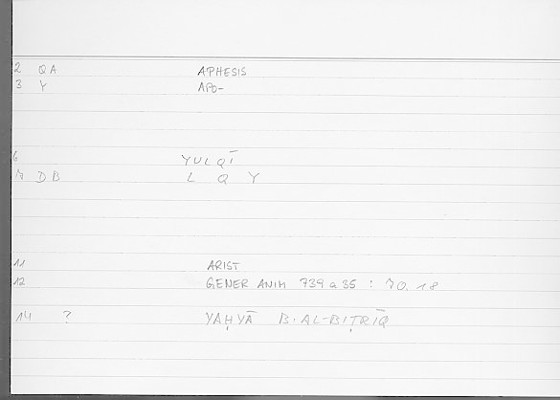 2 QA APHESIS
3 Y APO-
6 YULQĪ
7 DB L Q Y
11 ARIST
12 GENER ANIM 739 a 35 : 70.18
14 ? YAḤYĀ B. AL-BIṬRĪQ